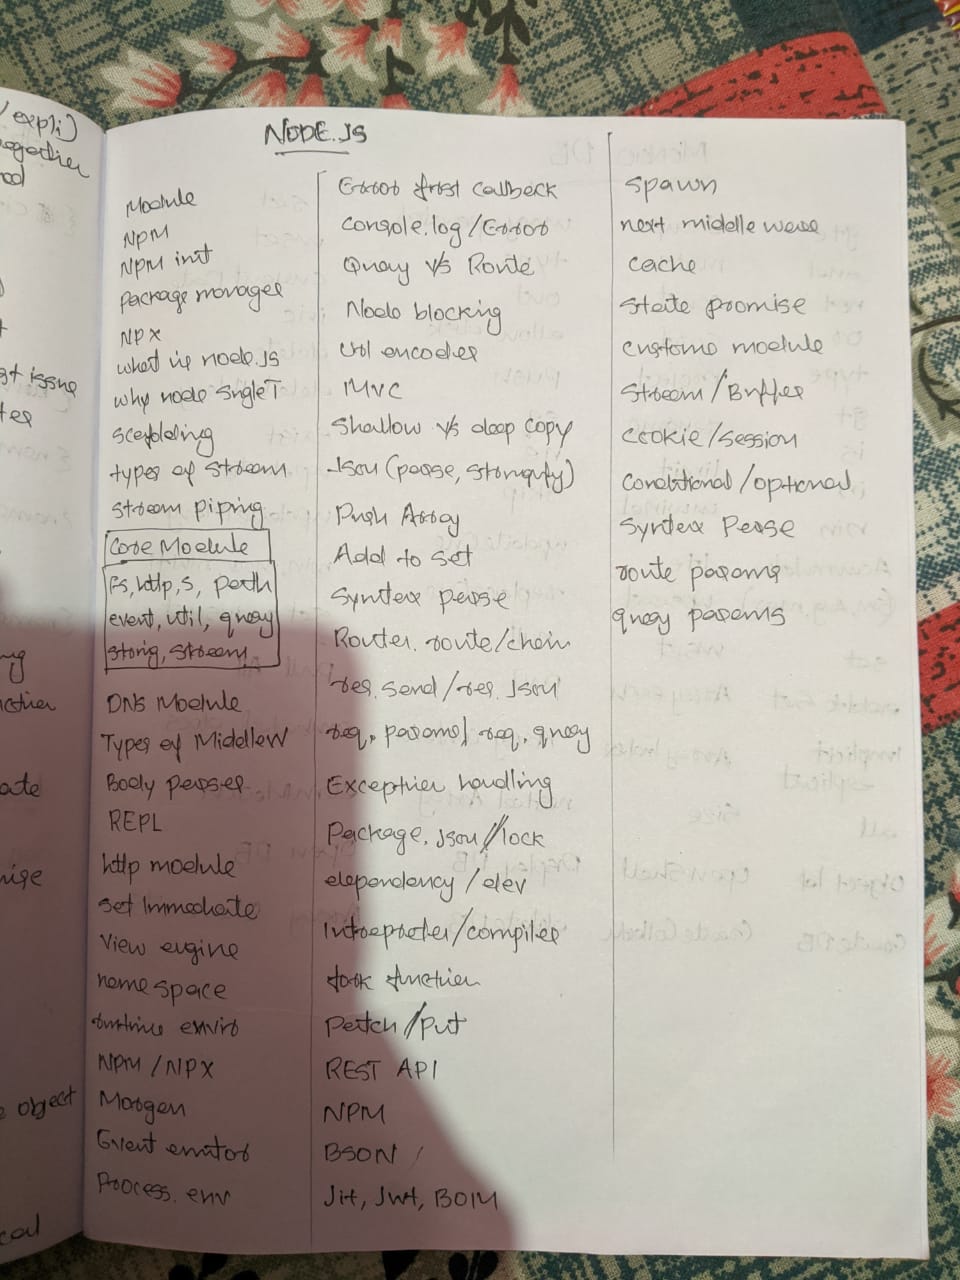 NODE.JS
Module
NPM
NPM init
package manager
NPX
what is node.js
why node SingleT
Scafolding
types of Stream
Stream piping
Core Module
Fs, http, s, path
event, util, query
string, stream
DNS Module
Types of Middlew
Body parser
REPL
http module
set Immediate
View engine
name space
runtime enviro
NPM / NPX
Morgan
Event emitor
Process. env
Error first callback
Console.log / Error
Query V/s Route
Node blocking
Url encoder
MVC
Shallow V/s deep copy
Json (parse, Stringify)
Push Array
Add to set
Syntax parse
Router. route/chain
res. send / res. Json
req. params / req. query
Exception handling
Package. json // lock
dependency / dev
Intrepreter / compiler
fork function
Patch / Put
REST API
NPM
BSON
Jit, Jwt, BOM
Spawn
next middle ware
cache
State promise
customs module
Stream / Buffer
Cookie / Session
Conditional / optional
Syntax Parse
route params
query params